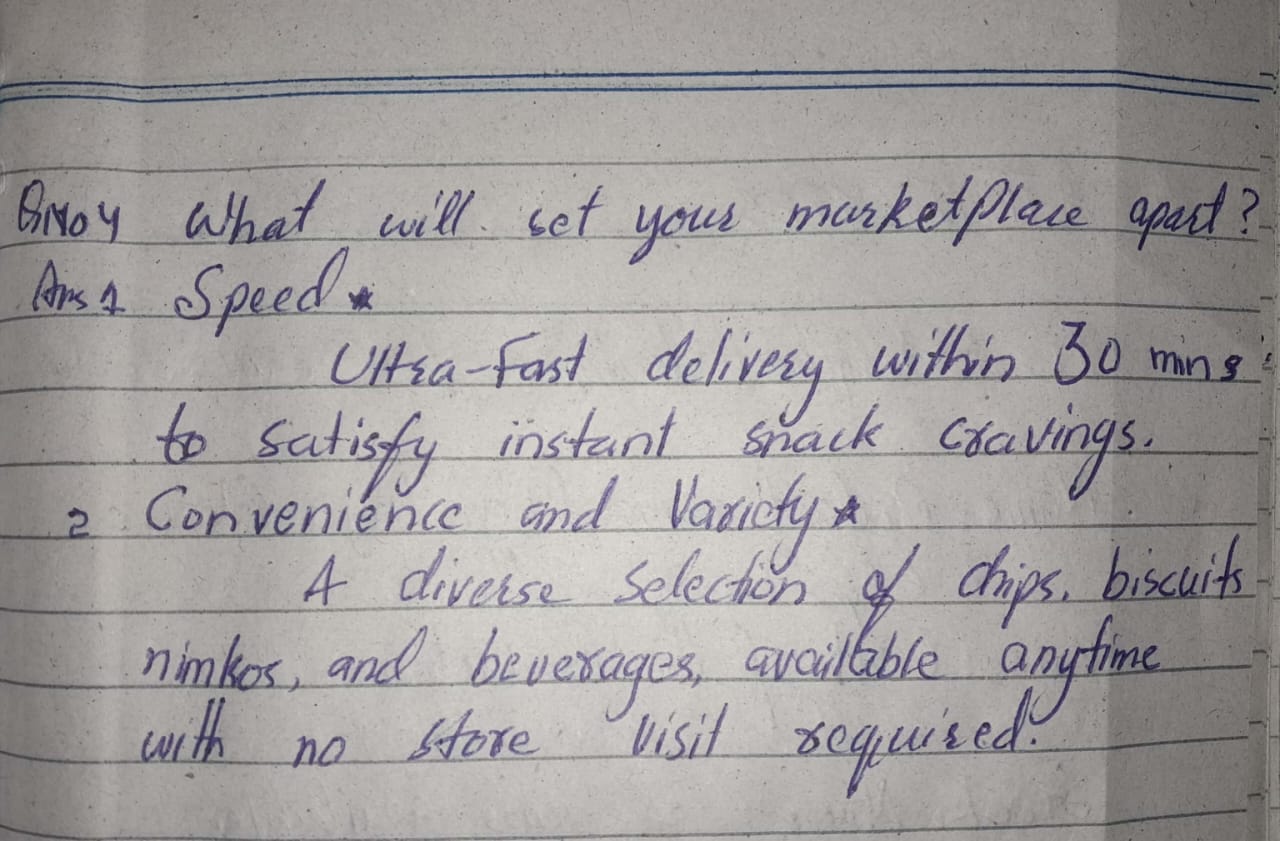 Q.No 4 What will set your marketplace apart?
Ans 1 Speed *
Ultra-fast delivery within 30 mins
to satisfy instant snack cravings.
2 Convenience and Variety *
A diverse selection of chips, biscuits
nimkos, and beverages, available anytime
with no store visit required.